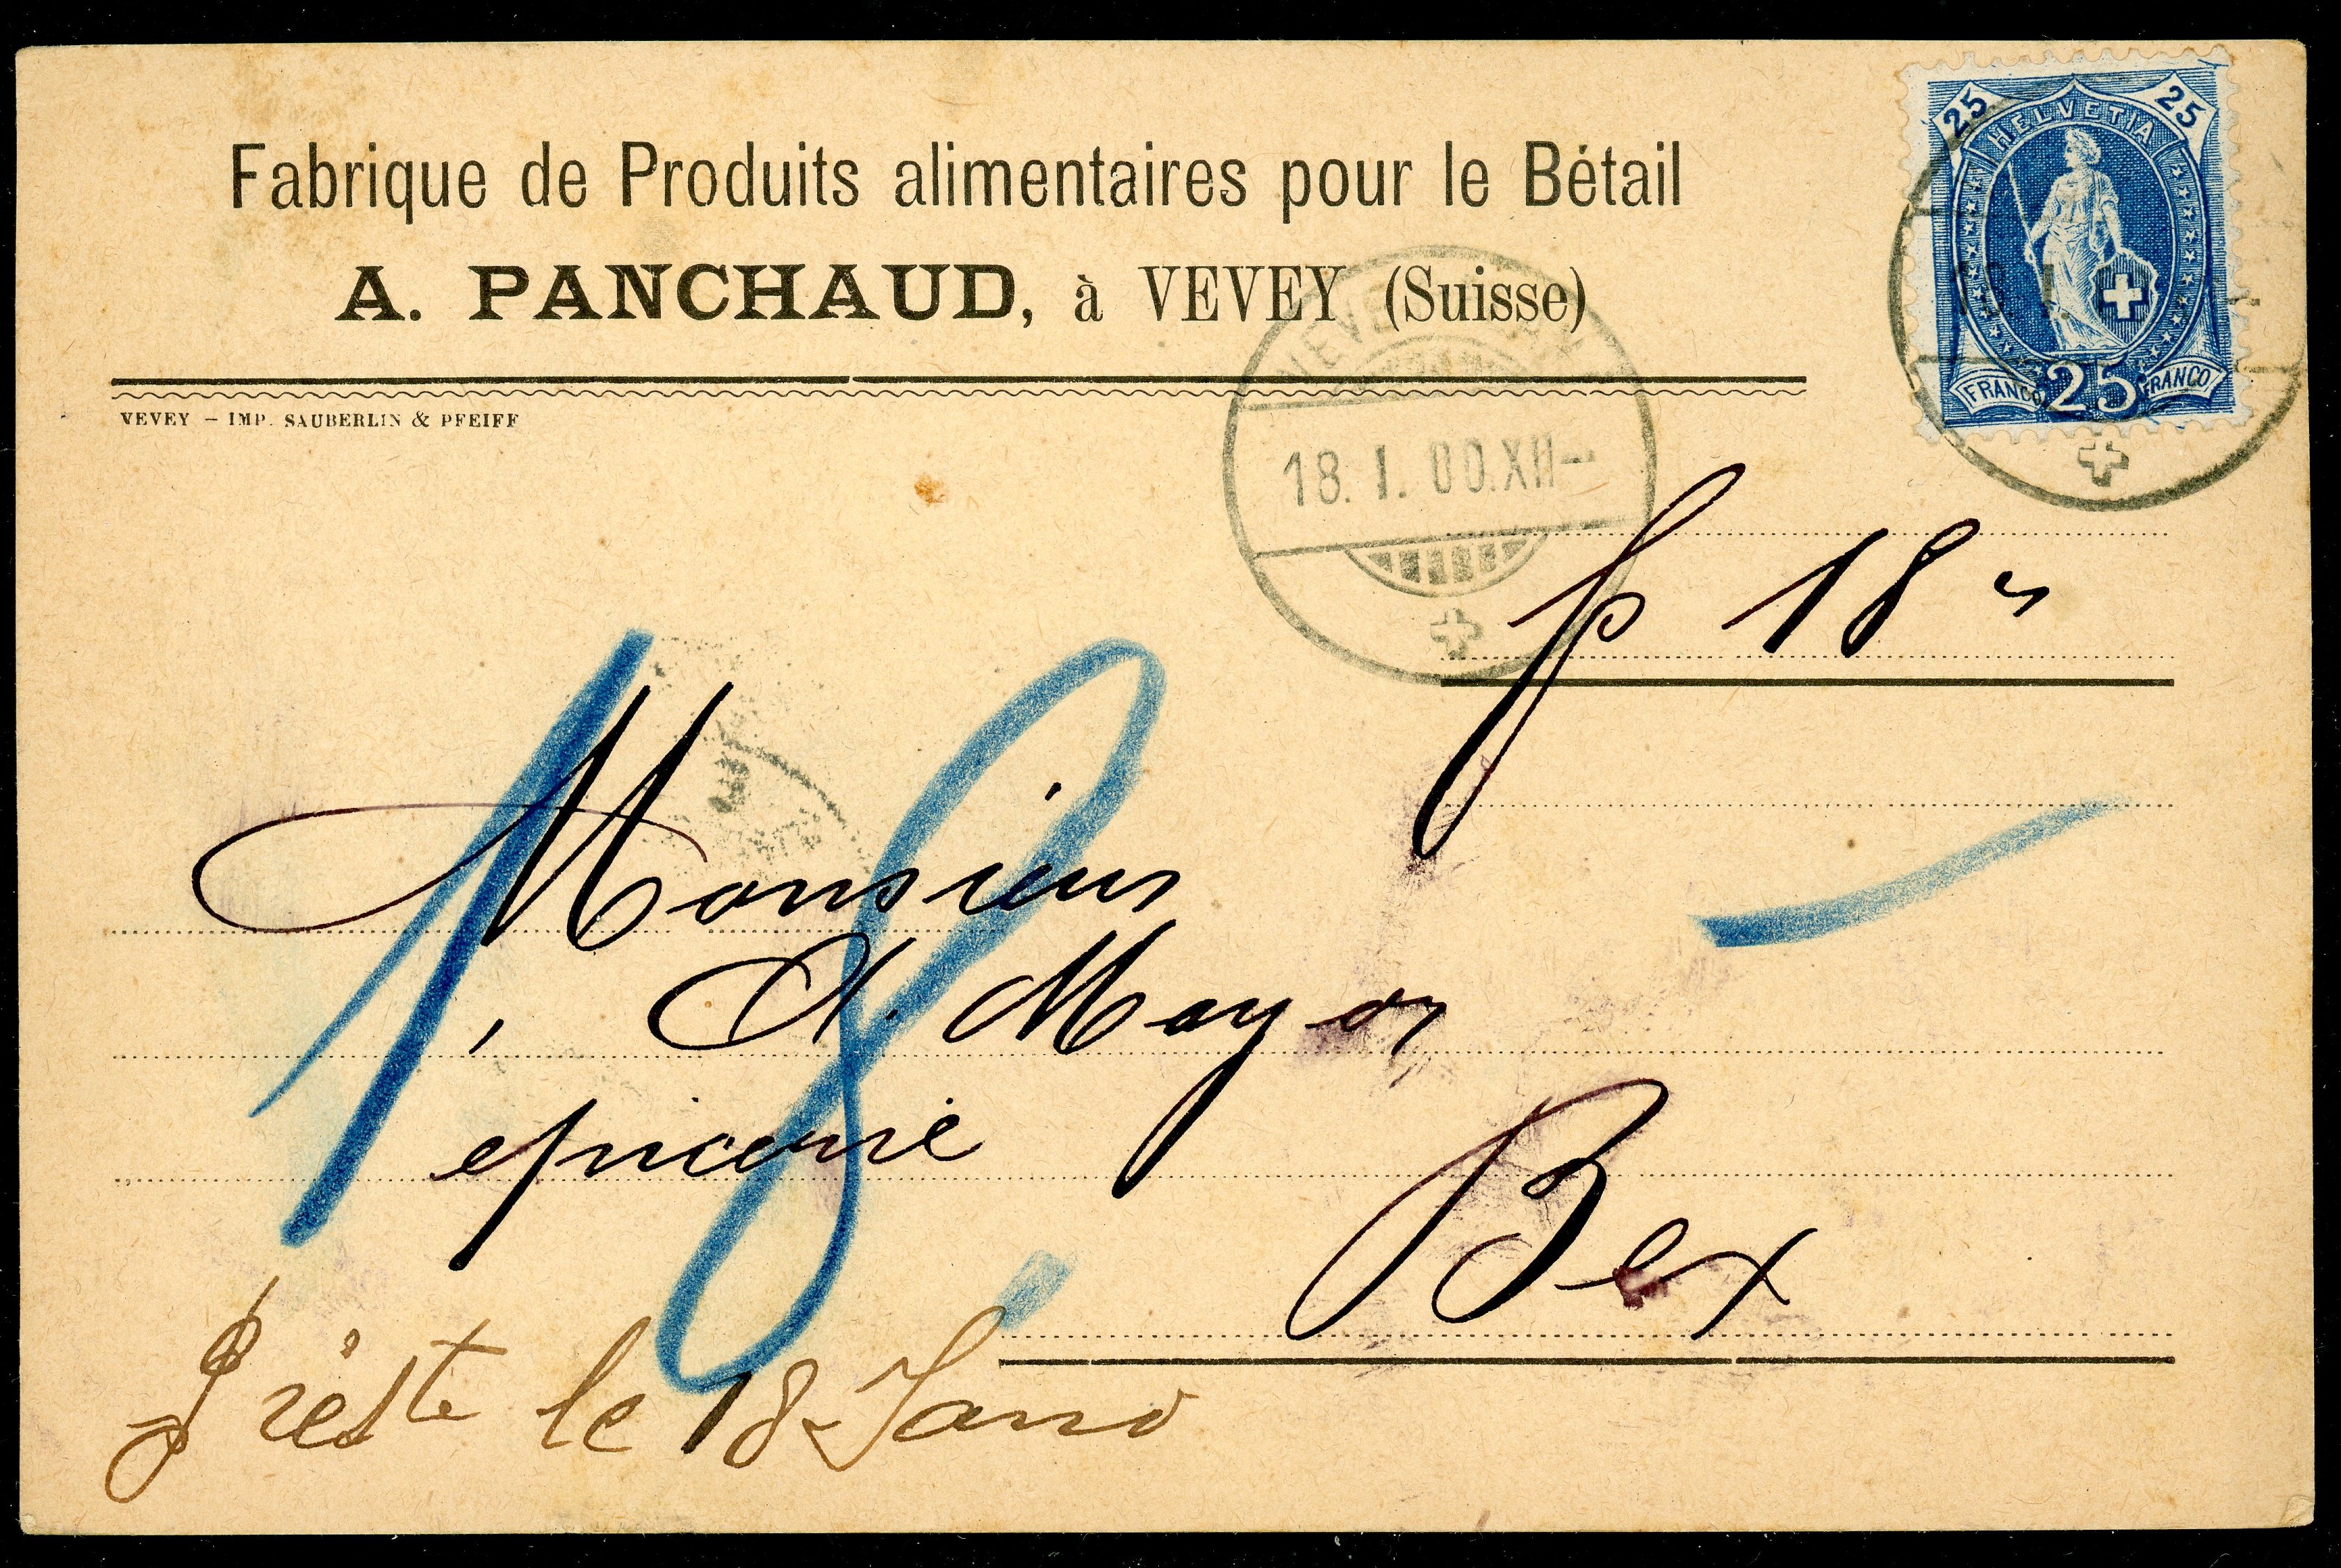 Fabrique de Produits alimentaires pour le Bétail
A. PANCHAUD, à VEVEY (Suisse)
VEVEY – IMP. SAUBERLIN & PFEIFF
25 HELVETIA 25
FRANCO 25 FRANCO
VEVEY
18. I. 00. XII–
fr 18
18
Monsieur
A. Mayor
epicerie
Bex
le 18 Janv